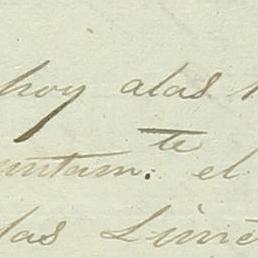 hoy alas
te
untam. el
las Lime